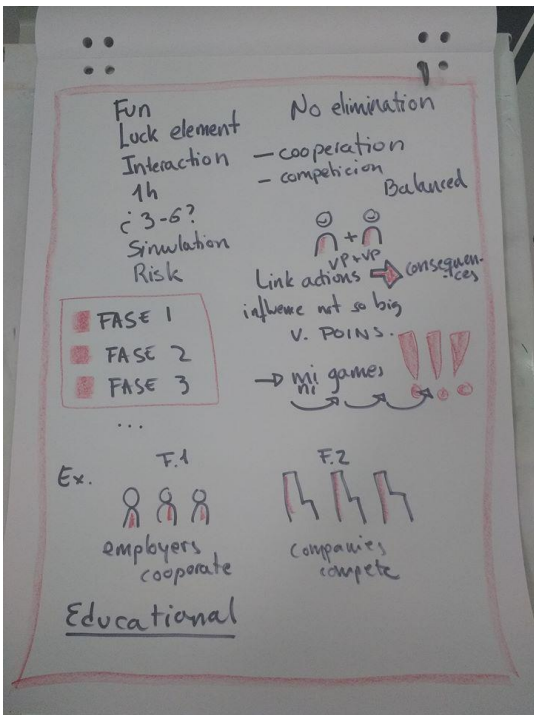 Fun
Luck element
Interaction
1h
¿3-6?
Simulation
Risk
No elimination
- cooperation
- competicion
Balanced
+
VP+VP
Link actions
consequen-
ces
influence not so big
V. POINS.
mi
ni games
!!!
FASE 1
FASE 2
FASE 3
...
Ex.
F.1
employers
cooporate
F.2
companies
compete
Educational